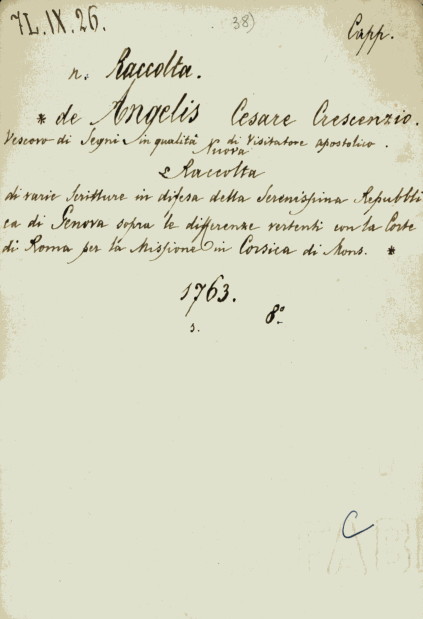 7L.IX.26.
38)
Capp.
n. Raccolta.
* de Angelis Cesare Crescenzio.
Vescovo di Segni in qualità di Visitatore apostolico.
Nuova
Raccolta
di varie Scritture in difesa della Serenissima Repubbli
ca di Genova sopra le differenze vertenti con la Corte
di Roma per la Missione in Corsica di Mons. *
1763.
s.
8.º
C